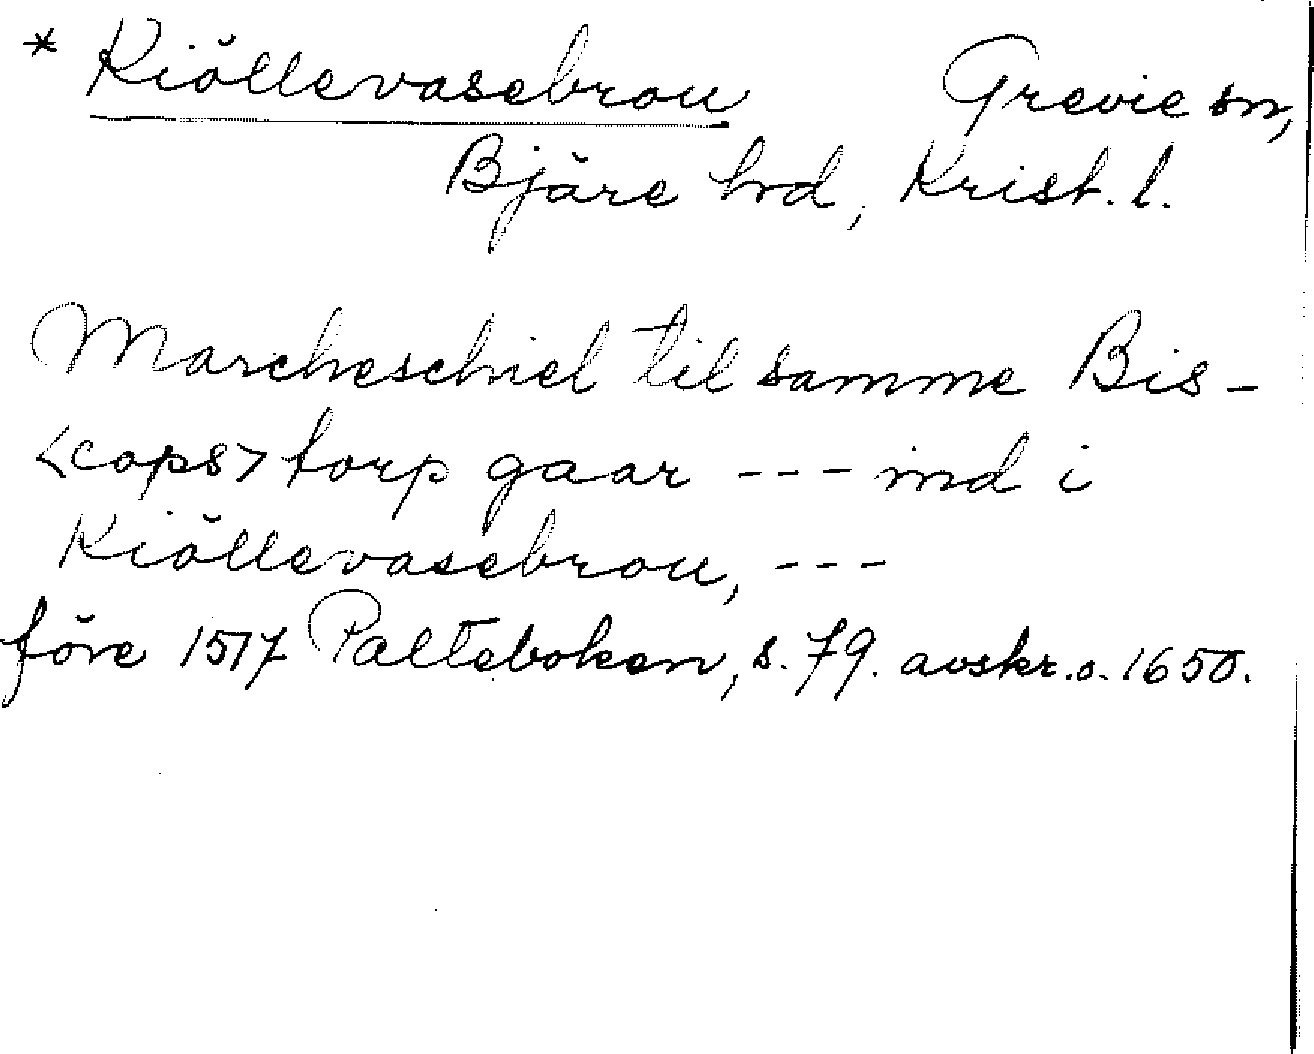 * Kiöllevasebrou Grevie sn,
Bjäre hd, Krist. l.
Marcheschiel til samme Bis-
<cops> torp gaar --- ind i
Kiöllevasebrou, ---
före 1517 Palteboken, s. 79. avskr. o. 1650.